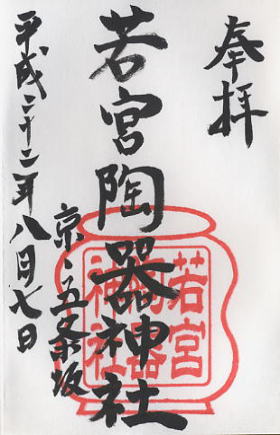 奉拝
若宮陶器神社
京・五条坂
平成二十二年八月七日
若宮
陶器
神社